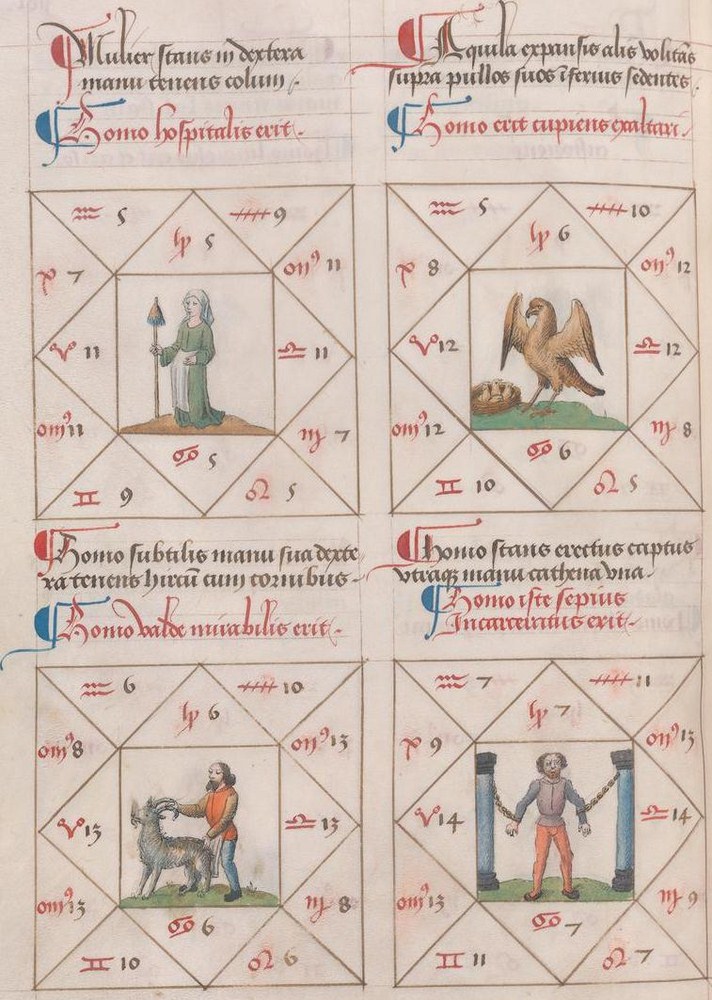 Mulier stans in dextera
manu tenens colum
Homo hospitalis erit
Aquila expansis alis volitās
supra pullos suos īferius sedentes
Homo erit cupiens exaltari
♒ 5
♑ 5
9
7
11
♈ 11
♎ 11
11
♏ 7
♋ 5
♊ 9
♌ 5
♒ 5
♑ 6
10
8
12
♈ 12
♎ 12
12
♏ 8
♋ 6
♊ 10
♌ 5
Homo subtilis manu sua dexte
ra tenens hircū cum cornibus
Homo valde mirabilis erit
Homo stans erectus captus
utraqꝫ manu cathena una
Homo iste sepius
Incarceratus erit
♒ 6
♑ 6
10
8
13
♈ 13
♎ 13
13
♏ 8
♋ 6
♊ 10
♌ 6
♒ 7
♑ 7
11
9
13
♈ 14
♎ 14
13
♏ 9
♋ 7
♊ 11
♌ 7